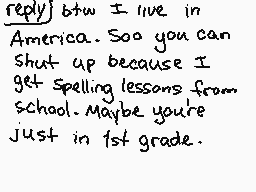 reply} btw I live in
America. Soo you can
shut up because I
get spelling lessons from
school. Maybe you're
just in 1st grade.